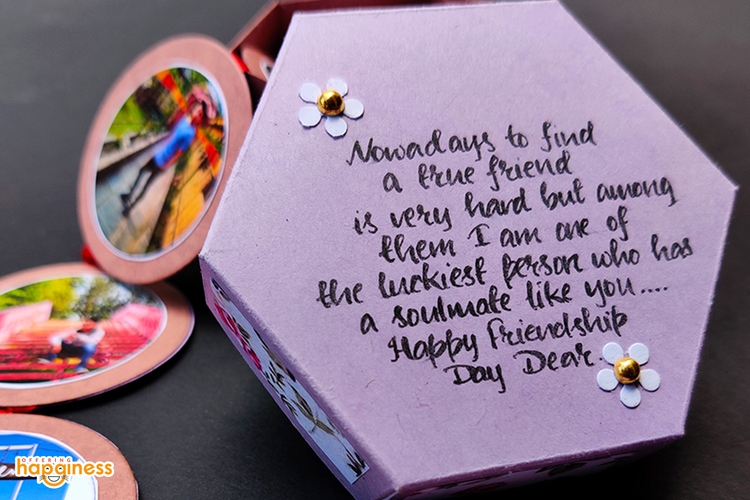 Nowadays to find
a true friend
is very hard but among
them I am one of
the luckiest person who has
a soulmate like you....
Happy Friendship
Day Dear.
OFFERING
happiness